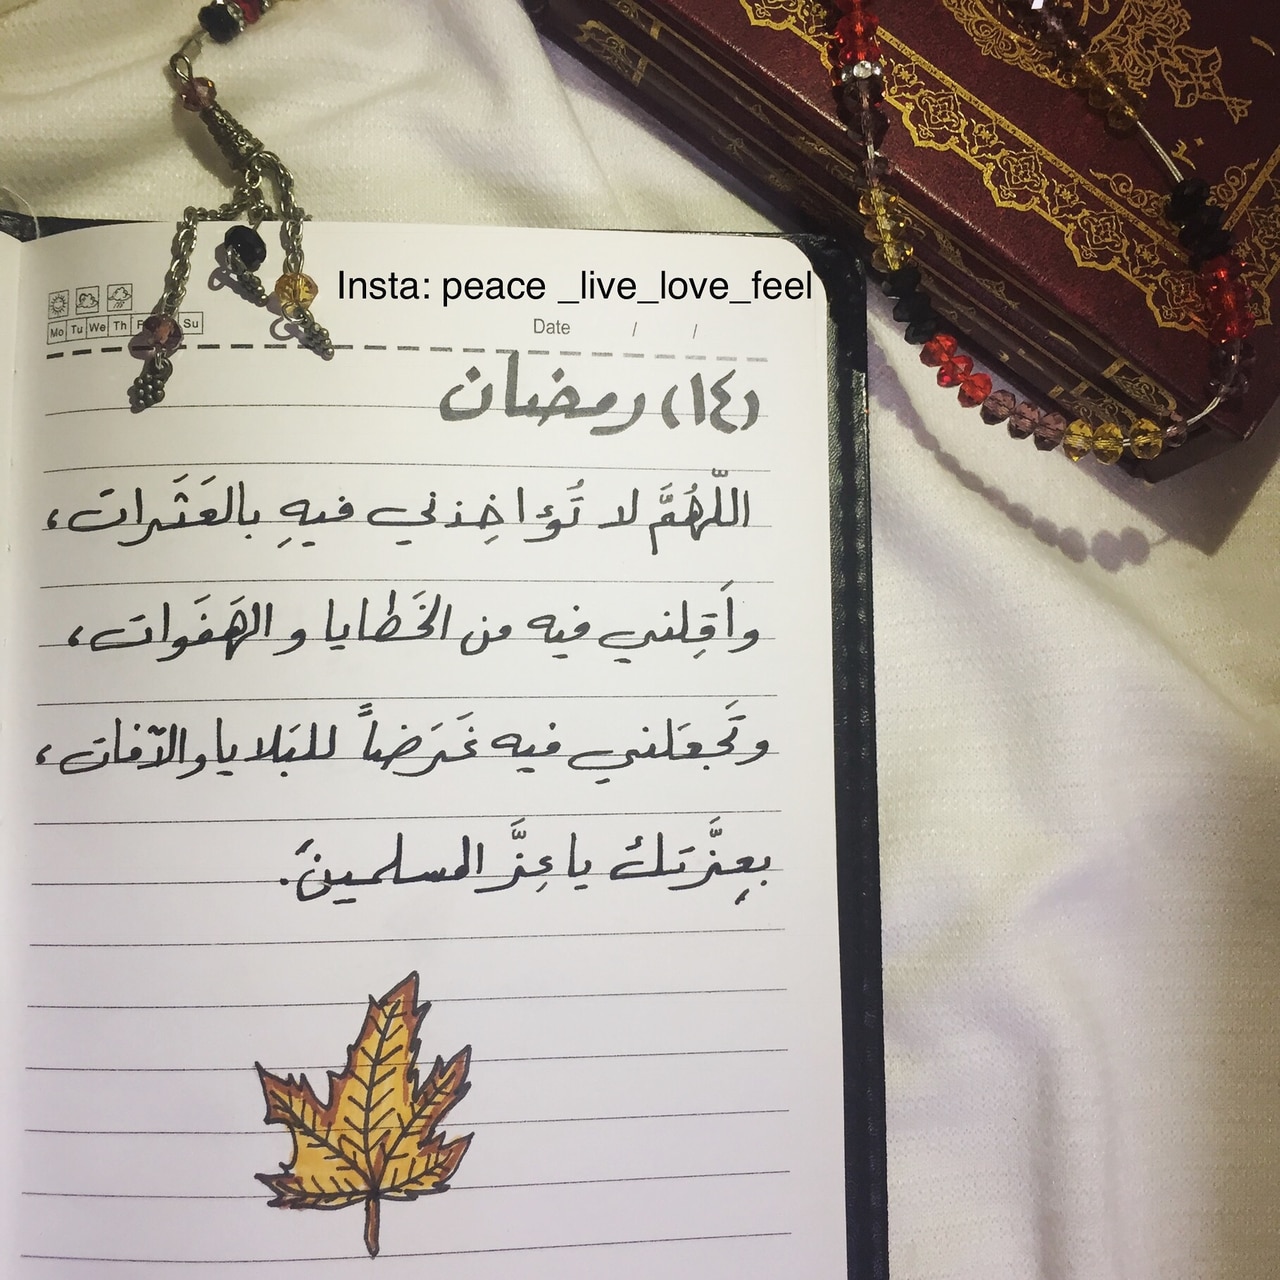 Insta: peace _live_love_feel
Mo Tu We Th F Su
Date / /
(١٤) رمضان
اللّهُمَّ لا تُؤاخِذني فيهِ بالعَثَرات،
واَقِلني فيه من الخَطايا و الهَفَوات،
وتَجعَلني فيه غَرَضاً للبَلايا والآفات،
بعِزَّتك يا عِزَّ المسلمينَ.